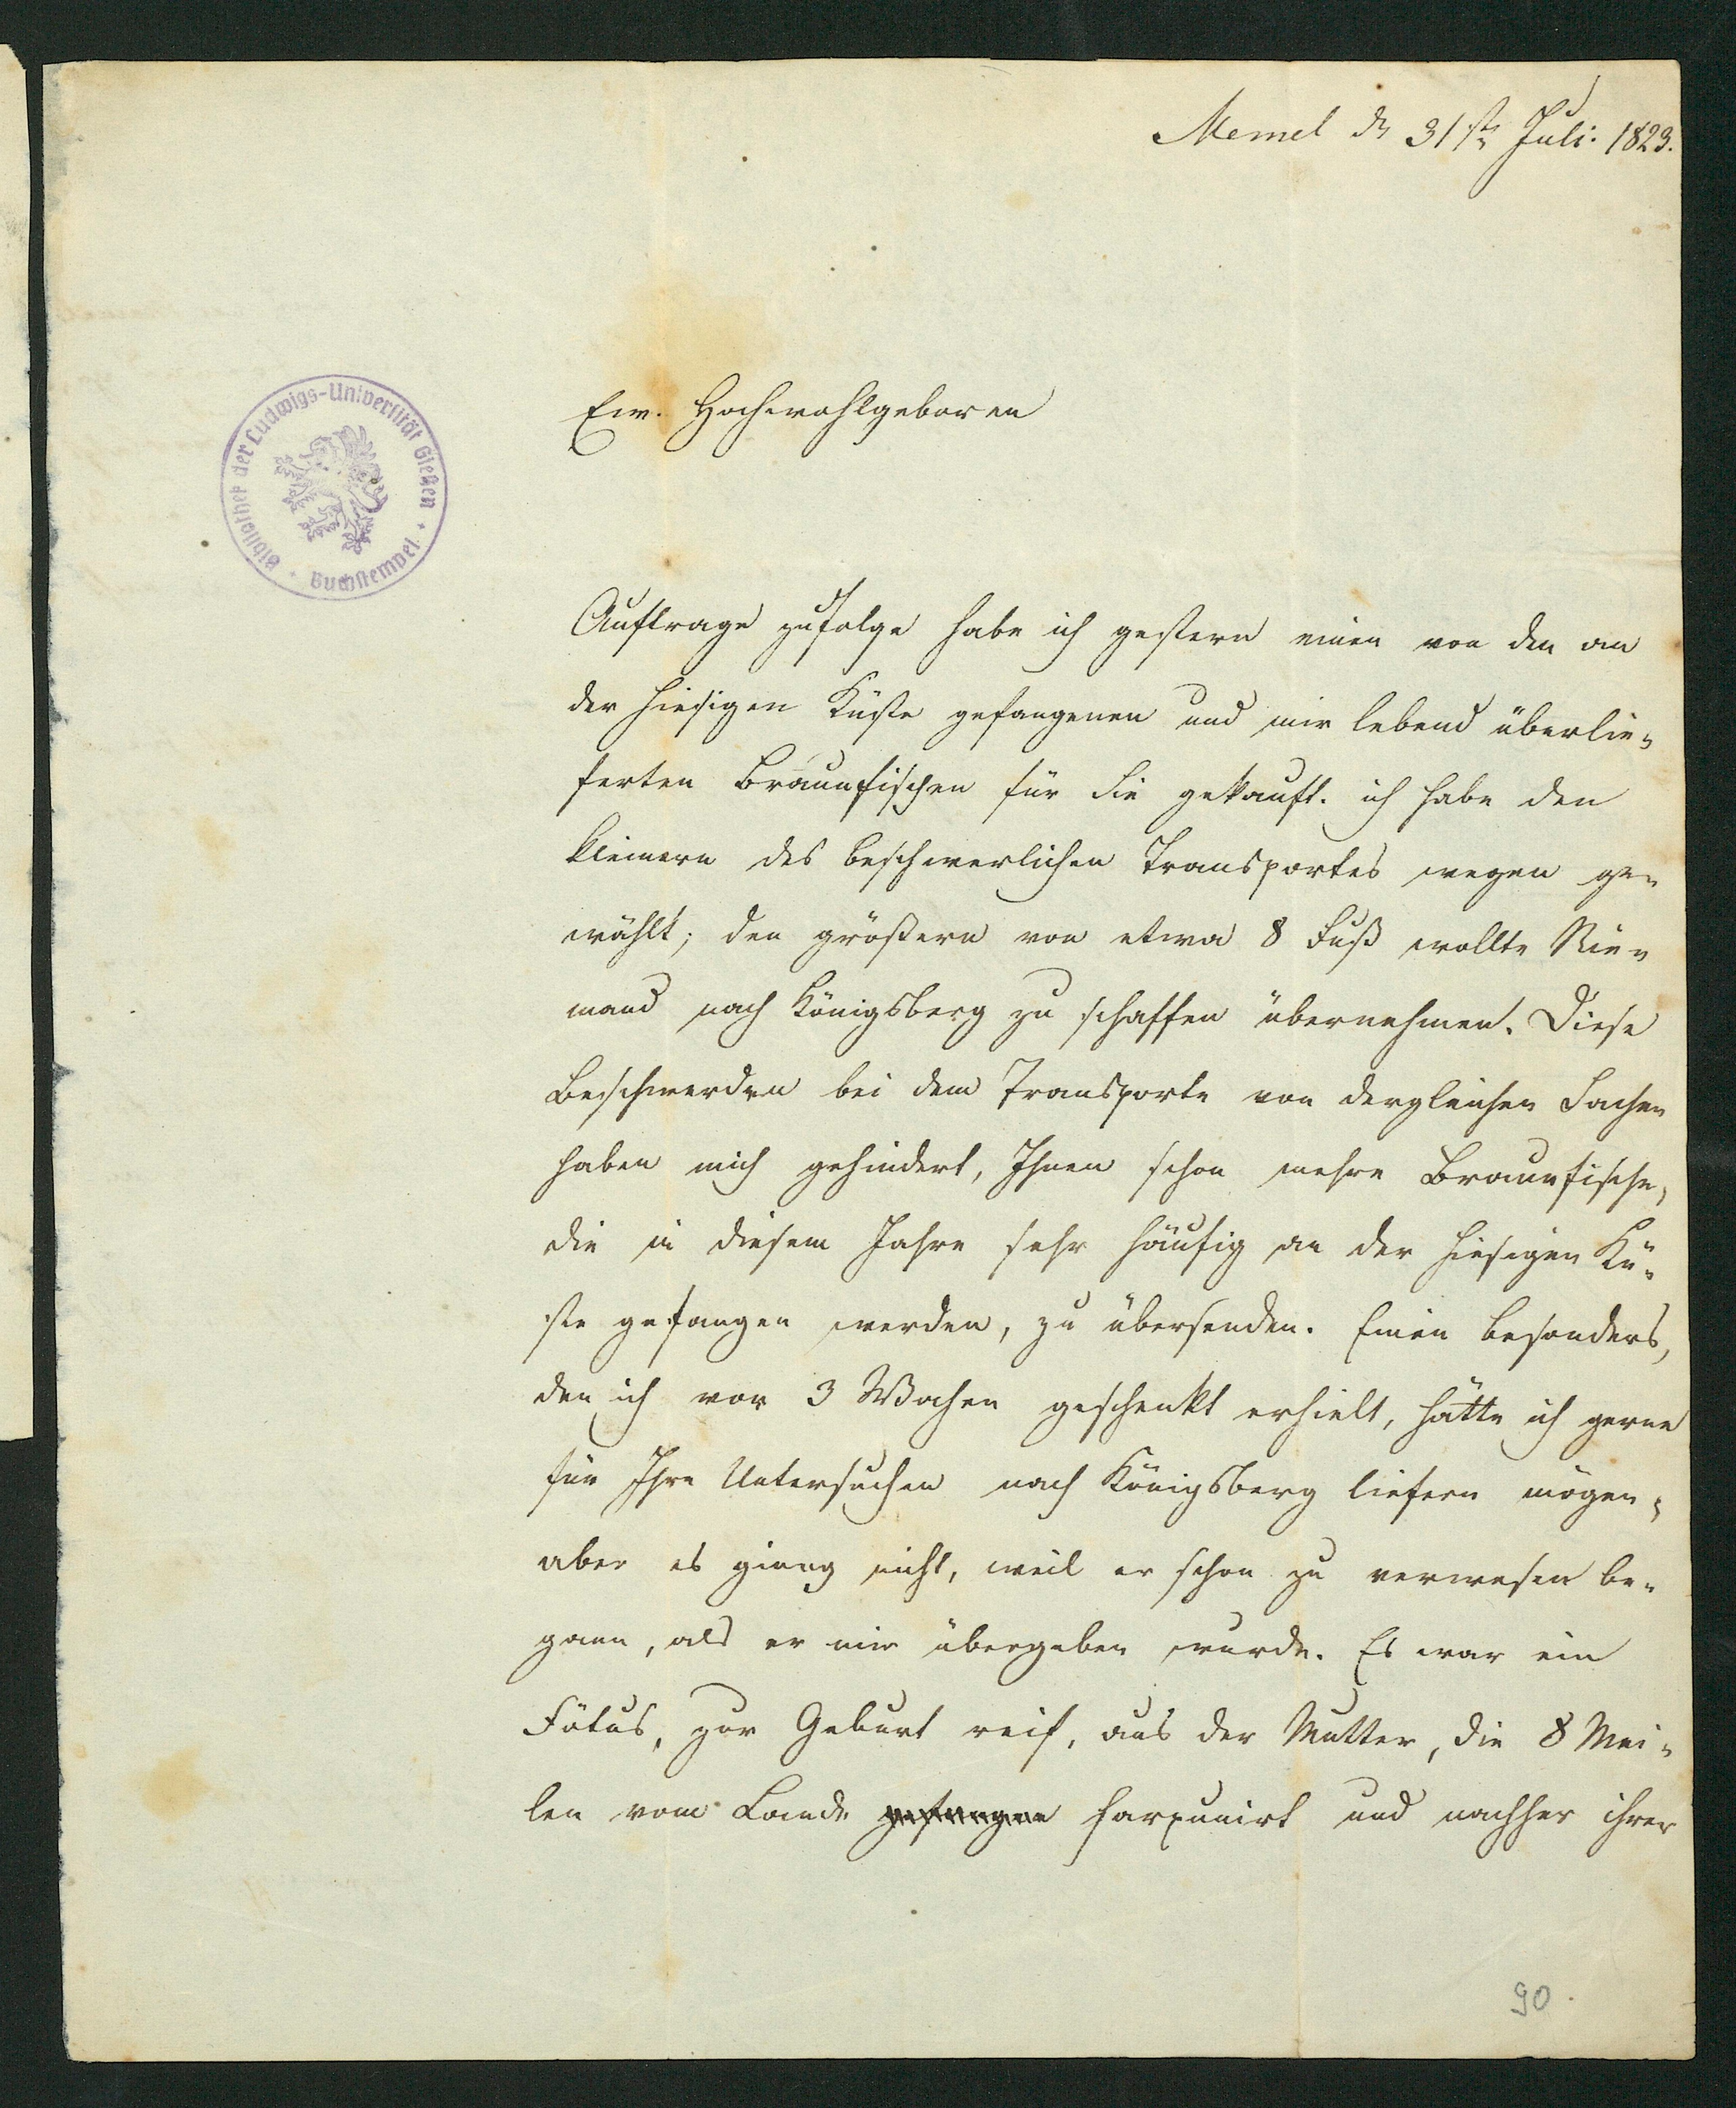 Memel dn 31stn Juli. 1823.
Bibliothek der Ludwigs-Universität Gießen · Buchstempel ·
Ew. Hochwohlgeboren
Auftrage zufolge habe ich gestern einen von den an
der hiesigen Küste gefangenen und mir lebend überlie-
ferten Braunfischen für Sie gekauft. ich habe den
kleinern des beschwerlichen Transportes wegen ge-
wählt; den größern von etwa 8 Fuß wollte Nie-
mand nach Königsberg zu schaffen übernehmen. Diese
Beschwerden bei dem Transporte von dergleichen Sachen
haben mich gehindert, Ihnen schon mehre Braunfische,
die in diesem Jahre sehr häufig an der hiesigen Kü-
ste gefangen werden, zu übersenden. Einen besonders,
den ich vor 3 Wochen geschenkt erhielt, hätte ich gerne
für Ihre Untersuchen nach Königsberg liefern mögen,
aber es gieng nicht, weil er schon zu verwesen be-
gann, als er mir übergeben wurde. Es war ein
Fötus, zur Geburt reif, aus der Mutter, die 8 Mei-
len vom Lande gefangen harpunirt und nachher ihrer
90.